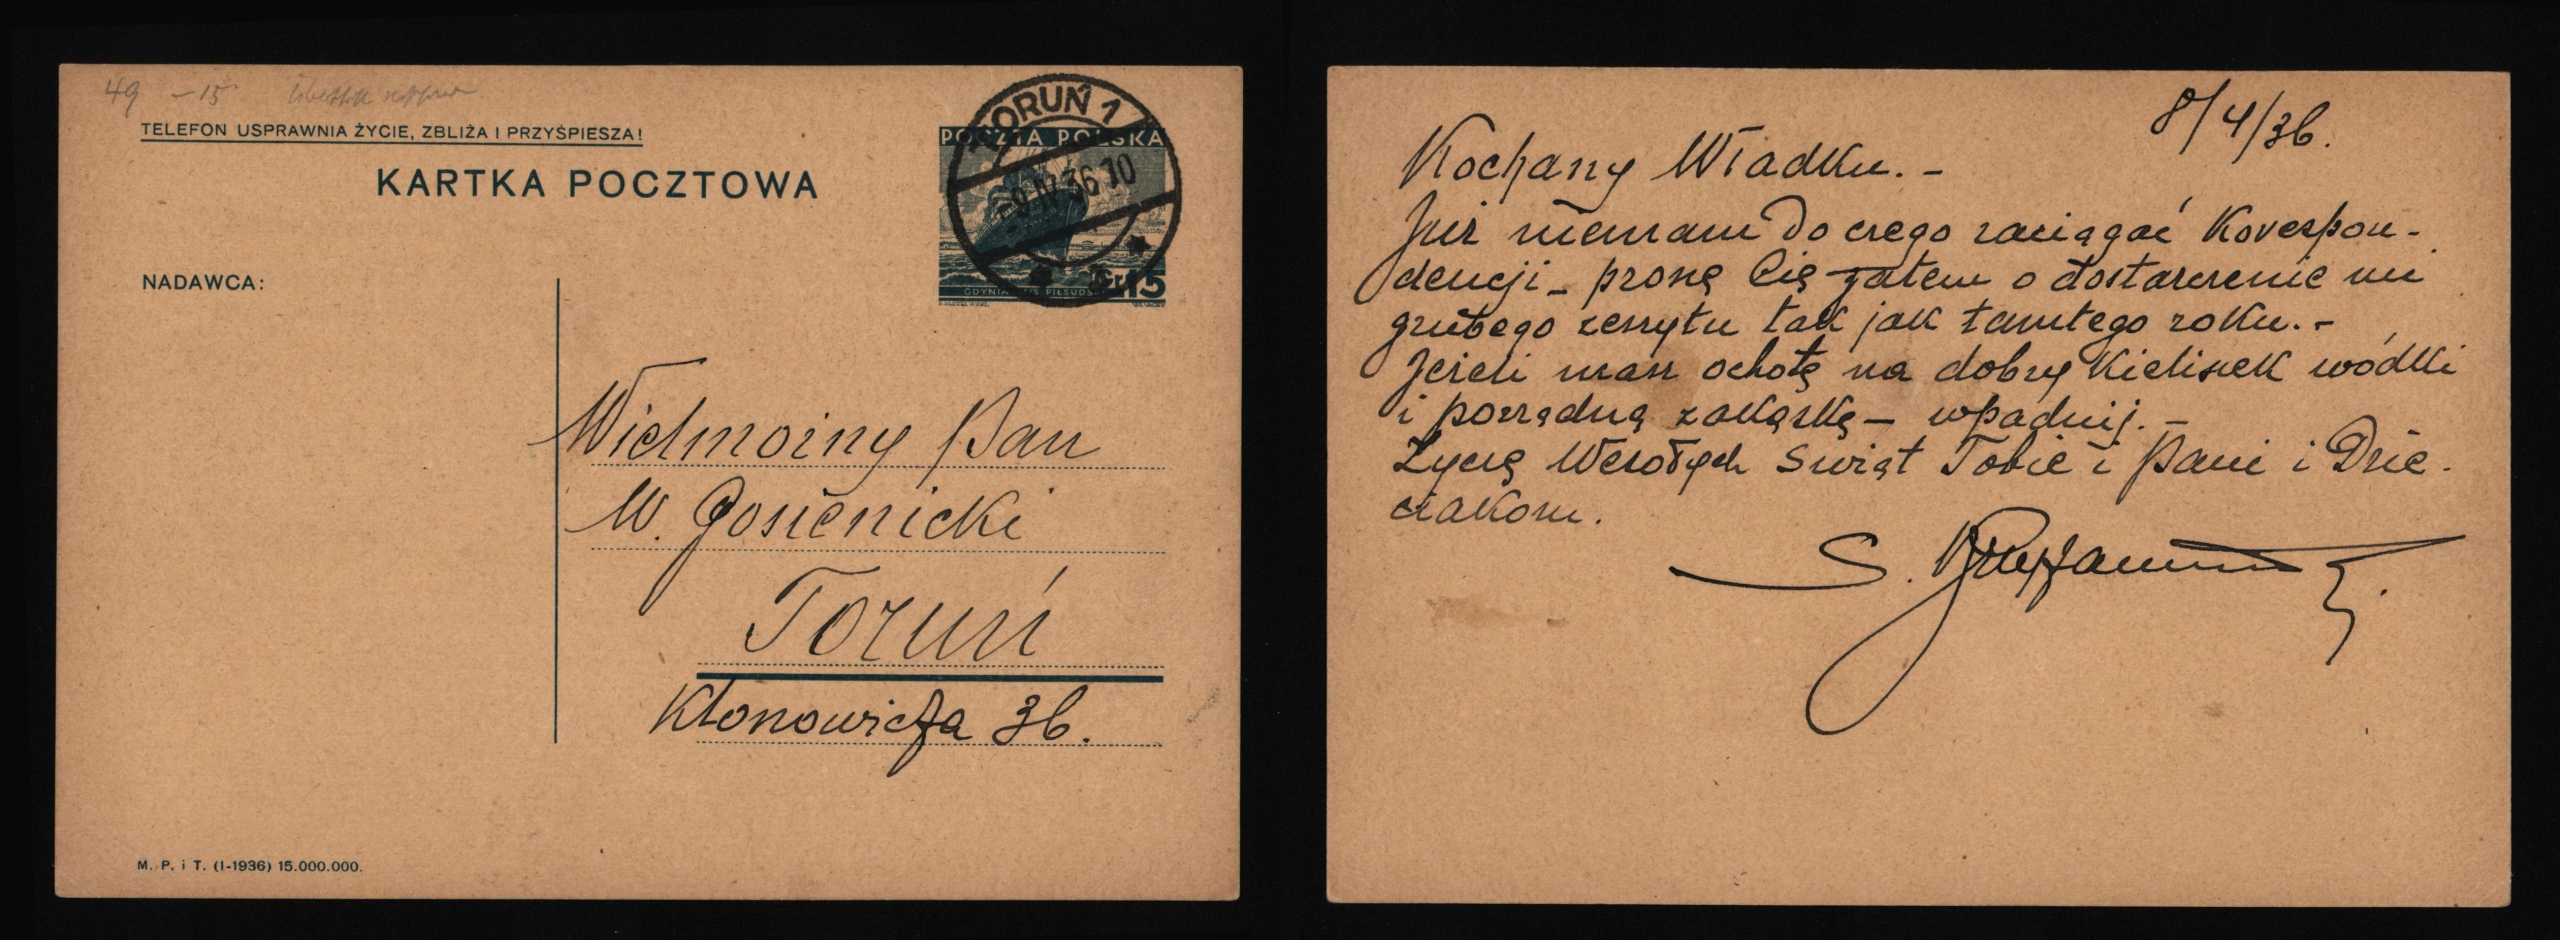 49 -15
TELEFON USPRAWNIA ŻYCIE, ZBLIŻA I PRZYŚPIESZA!
KARTKA POCZTOWA
TORUŃ 1
POCZTA POLSKA
-9 IV 36 10
Gr 15
GDYNIA M/S PIŁSUDSKI
NADAWCA:
Wielmożny Pan
W. Gosienicki
Toruń
Klonowicza 36.
M. P. i T. (I-1936) 15.000.000.
8/4/36.
Kochany Władku. -
Już niemam do czego zaciągać Korespon-
dencji - proszę Cię zatem o dostarczenie mi
grubego zeszytu tak jak tamtego roku. -
Jeżeli masz ochotę na dobry Kieliszek wódki
i porządną zakąskę - wpadnij. -
Życzę Wesołych Świąt Tobie i Pani i Dzie-
ciakom.
S.